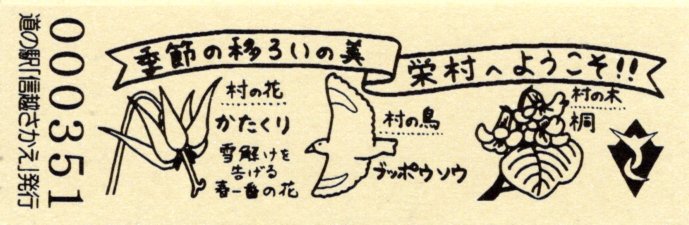 道の駅「信越さかえ」発行
000351
季節の移ろいの美
栄村へようこそ!!
村の花
かたくり
雪解けを
告げる
春一番の花
村の鳥
ブッポウソウ
村の木
桐